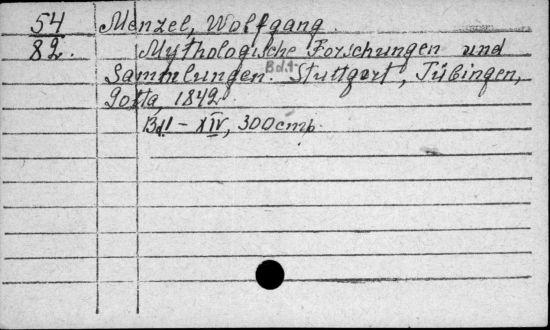 54 Menzel, Wolfgang.
82. Mythologische Forschungen und
Sammlungen. Bd.1. Stuttgart, Tübingen,
Gotta, 1842.
Bd.I - XIV, 300 cmp.